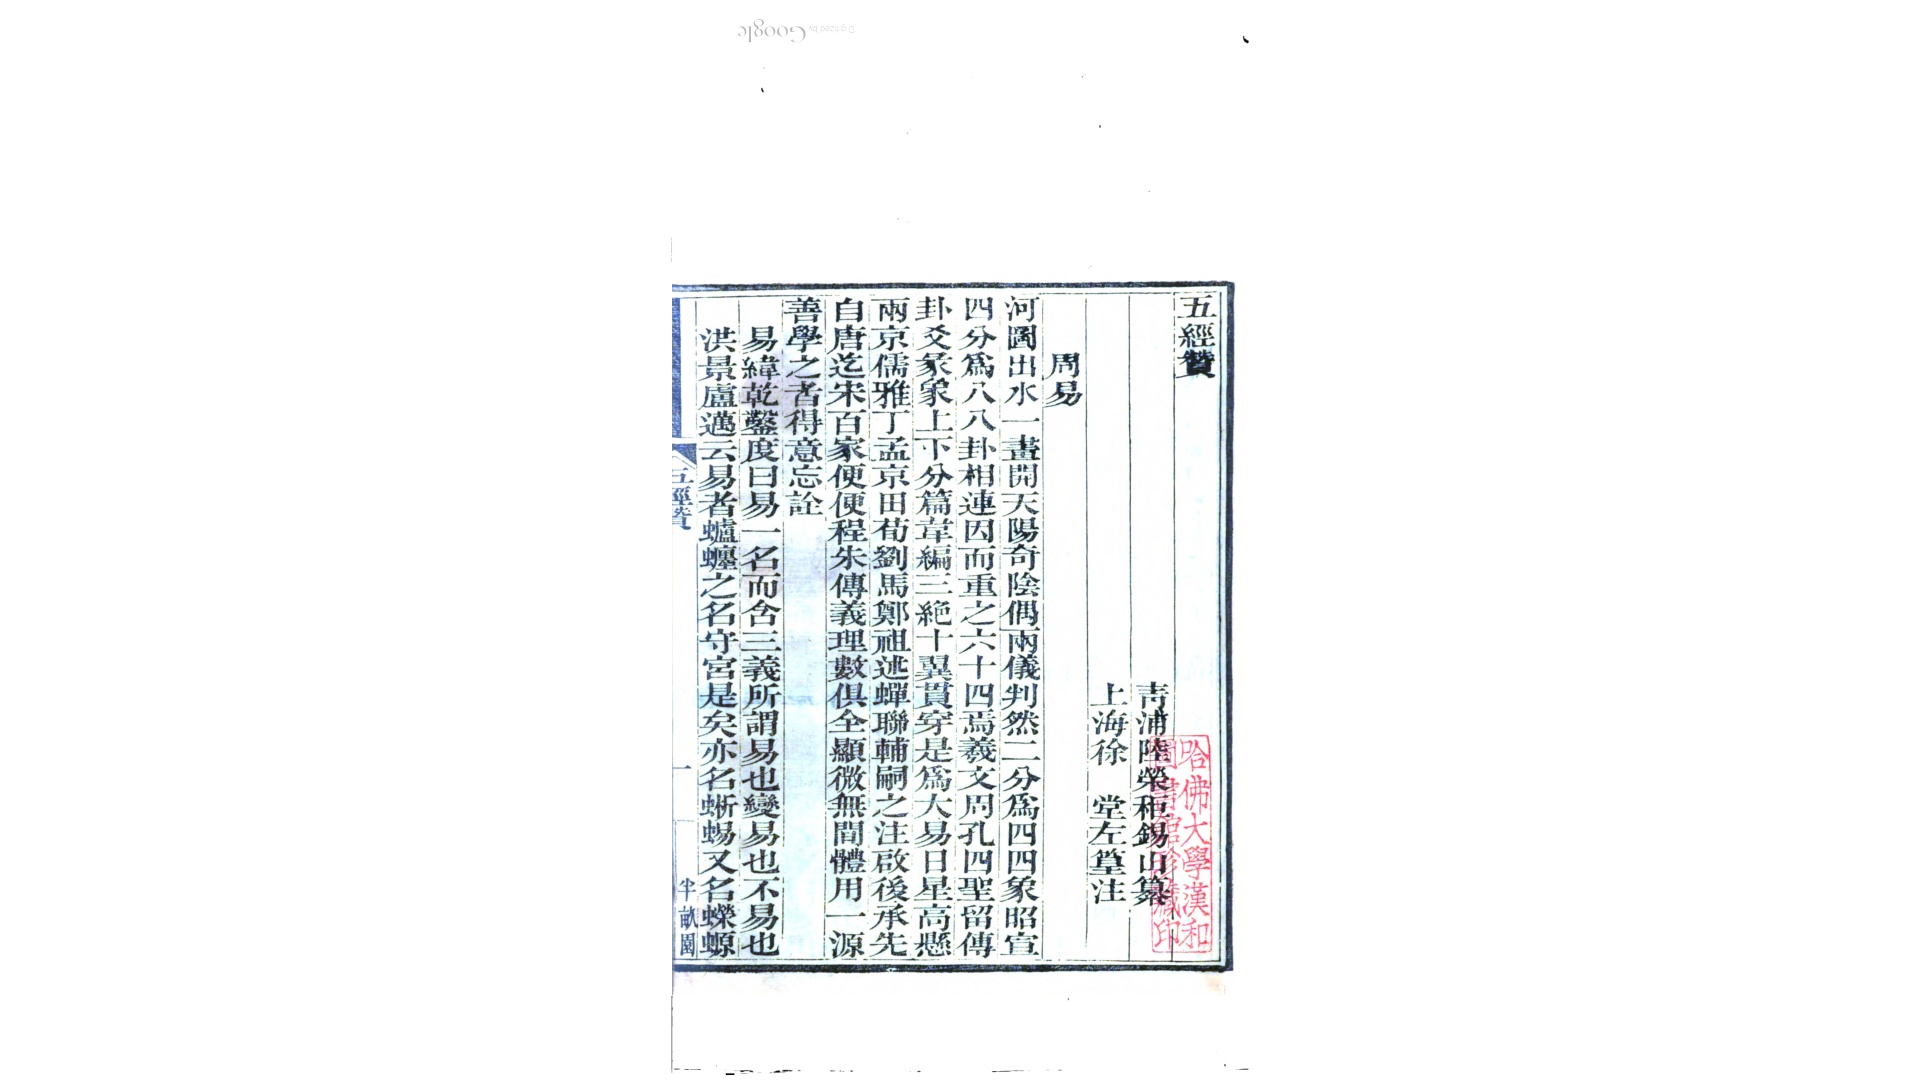 五經贊
青浦陸榮秬錫山纂
上海徐　堂左簋注
周易
河圖出水一畫開天陽奇陰偶兩儀判然二分爲四四象昭宣
四分爲八八卦相連因而重之六十四焉羲文周孔四聖留傳
卦爻彖象上下分篇韋編三絶十翼貫穿是爲大易日星高懸
兩京儒雅丁孟京田荀劉馬鄭祖述蟬聯輔嗣之注啟後承先
自唐迄宋百家便便程朱傳義理數俱全顯微無間體用一源
善學之者得意忘詮
易緯乾鑿度曰易一名而含三義所謂易也變易也不易也
洪景盧邁云易者蠦𧔥之名守宮是矣亦名蜥蜴又名蠑螈
五經贊
一
半畝園
哈佛大學漢和
圖書館珍藏印
Digitized by Google